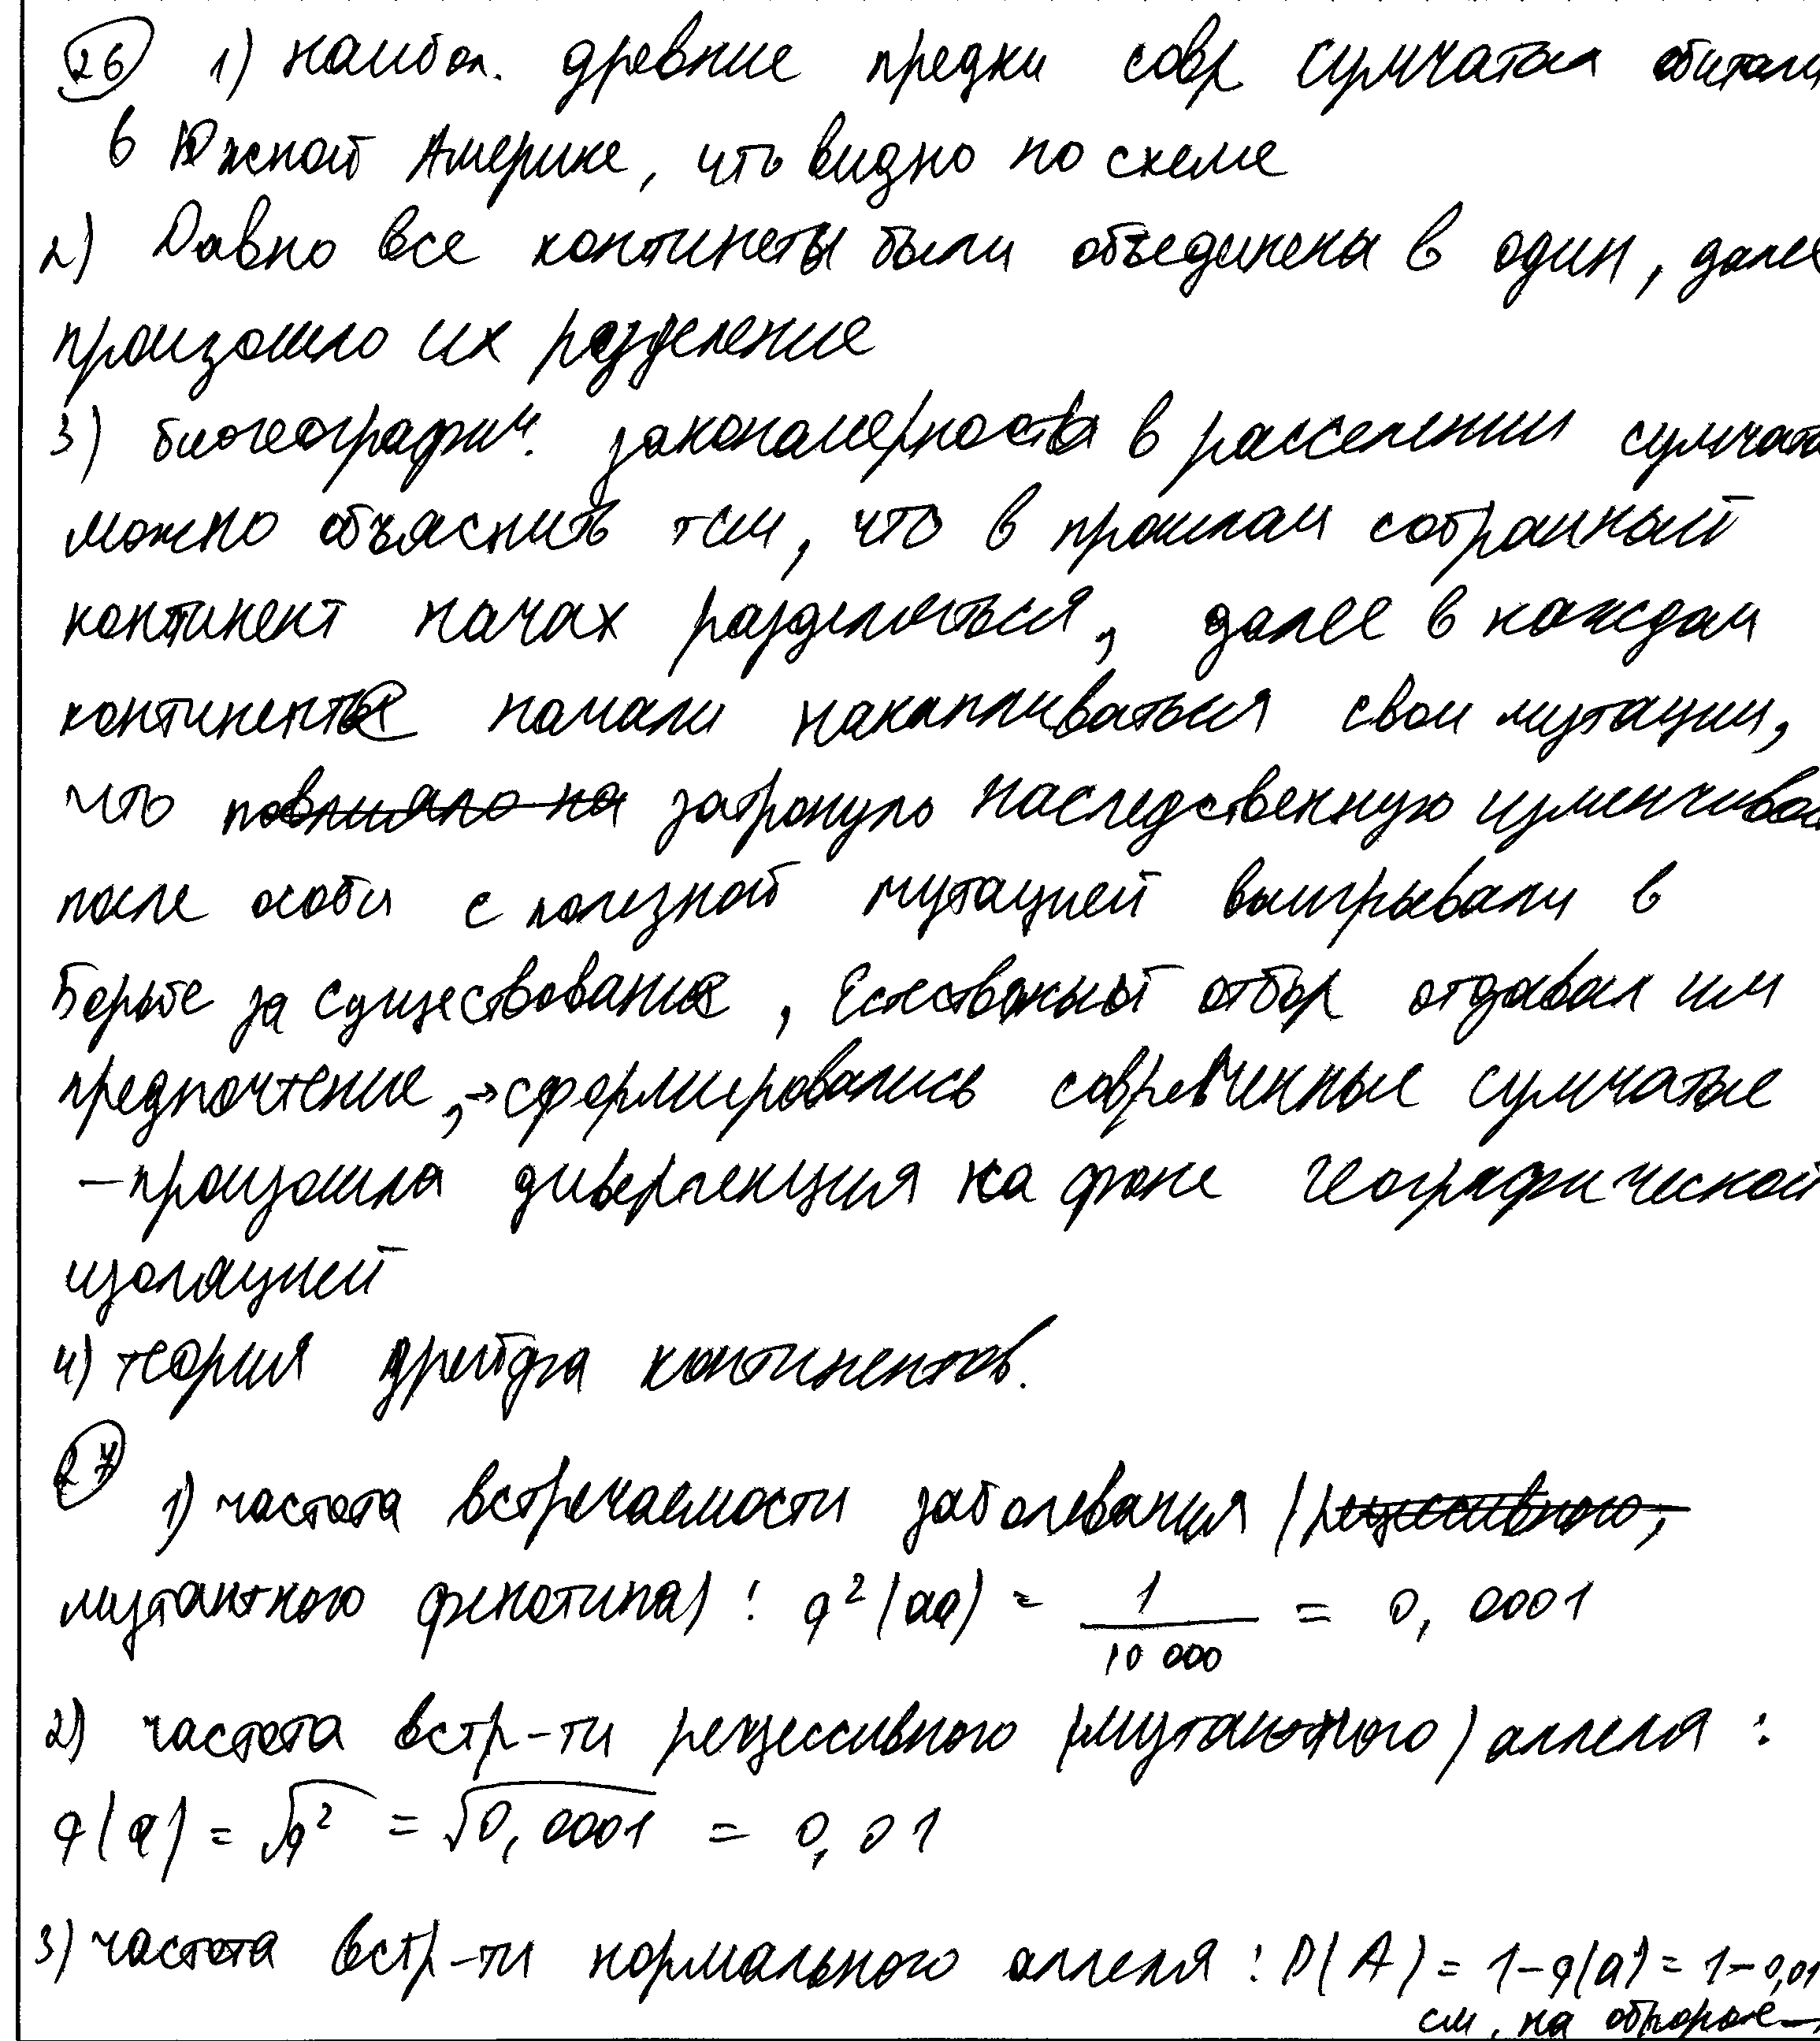 26 1) наибол. древние предки совр сумчатых обитали
в Южной Америке, что видно по схеме
2) Давно все континеты были объединены в один, далее
произошло их разделение
3) биогеографич. закономерности в расселении сумчаты
можно объяснить тем, что в прошлом собранный
континент начал разделяться, далее в каждом
континенте начали накапливаться свои мутации,
что повлияло на затронуло наследственную изменчивос
после особи с полезной мутацией выигрывали в
Борьбе за существование, Естественный отбор отдавал им
предпочтение, → сформировались современные сумчатые
– произошла дивергенция на фоне географической
изоляцией
4) теория дрейфа континентов.
27 1) частота встречаемости заболевания (рецессивного,
мутантного фенотипа) : q²(aa) = 1/10 000 = 0,0001
2) частота встр-ти рецессивного (мутантного) аллеля :
q(a) = √q² = √0,0001 = 0,01
3) частота встр-ти нормального аллеля : p(A) = 1-q(a) = 1-0,01
см. на обороте →